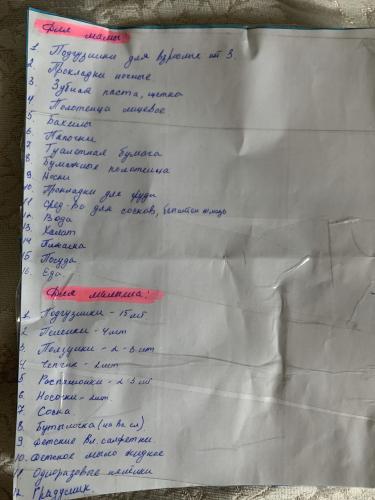 Для мамы:
1. Подгузники для взрослых от 3
2. Прокладки ночные
3. Зубная паста, щетка
4. Полотенце лицевое
5. Бахилы
6. Тапочки
7. Туалетная бумага
8. Бумажные полотенца
9. Носки
10. Прокладки для груди
11. Сред-во для сосков,
12. Вода
13. Халат
14. Пижамка
15. Посуда
16. Еда
Для малыша:
1. Подгузники - 15 шт
2. Пеленки - 4 шт
3. Ползунки - 2-3 шт
4. Чепчик - 2 шт
5. Распашонки - 2-3 шт
6. Носочки - 2 шт.
7. Соска
8. Бутылочка
9. Детские вл. салфетки.
10. Детское мыло жидкое
11. Одноразовые пелёнки
12. Градусник.